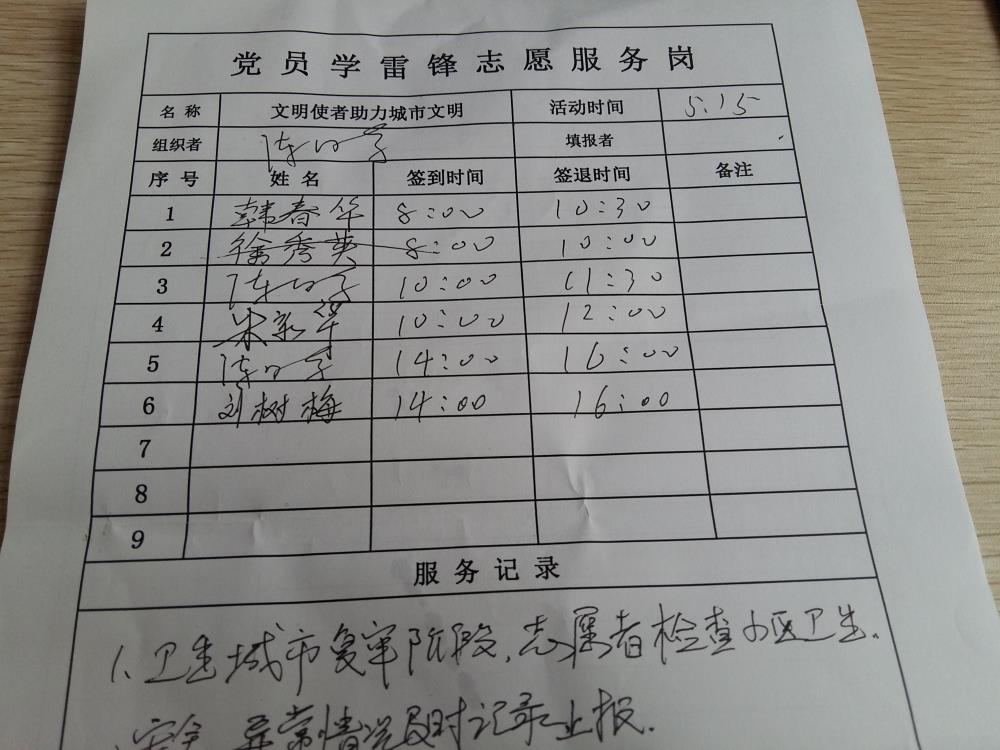 党员学雷锋志愿服务岗
名称 文明使者助力城市文明 活动时间 5.15
组织者 填报者
序号 姓名 签到时间 签退时间 备注
1 韩春华 8:00 10:30
2 徐秀英 8:00 10:00
3 10:00 11:30
4 朱新华 10:00 12:00
5 14:00 16:00
6 刘树梅 14:00 16:00
7
8
9
服务记录
1、卫生城市复审阶段,志愿者检查小区卫生.
安全,异常情况及时记录上报.